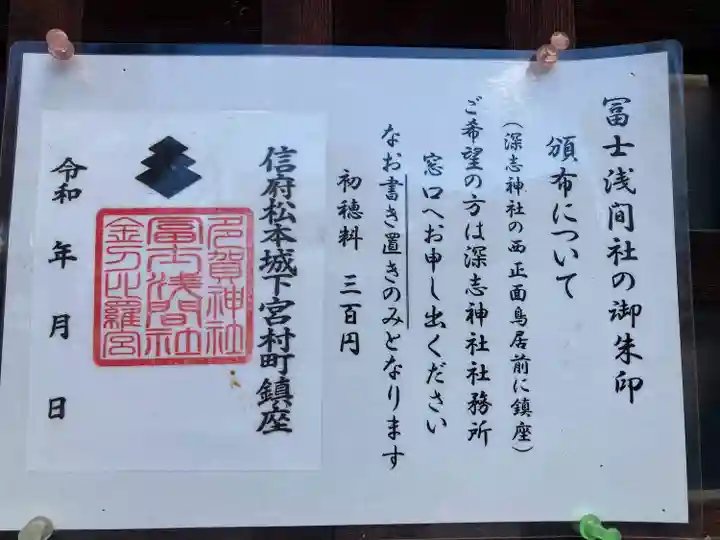 冨士浅间社の御朱印
頒布について
(深志神社の西 正面鳥居前に鎮座)
ご希望の方は深志神社社務所
窓口へお申し出ください
なお書き置きのみとなります
初穂料 三百円
信府松本城下宮村町鎮座
多賀神社
冨士浅間社
金刀比羅宮
令和 年 月 日